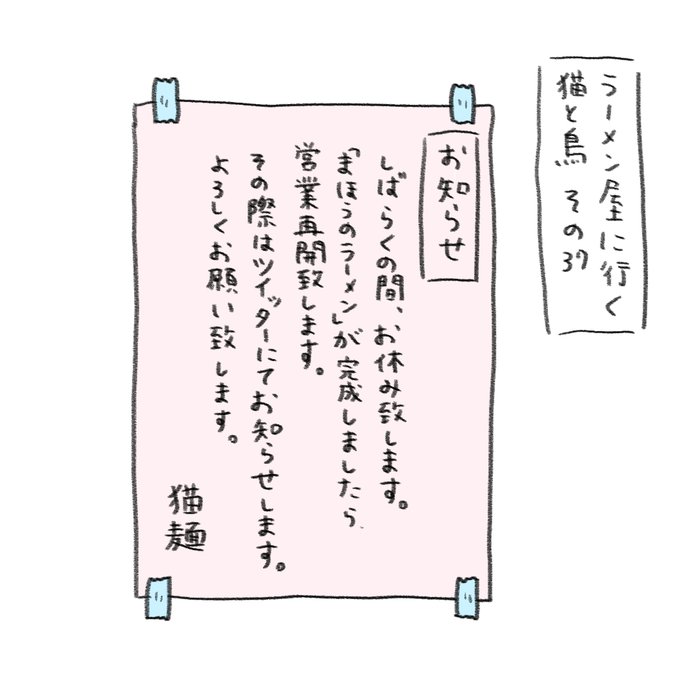 ラーメン屋に行く
猫と鳥 その37
お知らせ
しばらくの間、お休み致します。
「まほうのラーメン」が完成しましたら、
営業再開致します。
その際はツイッターにてお知らせします。
よろしくお願い致します。
猫麺